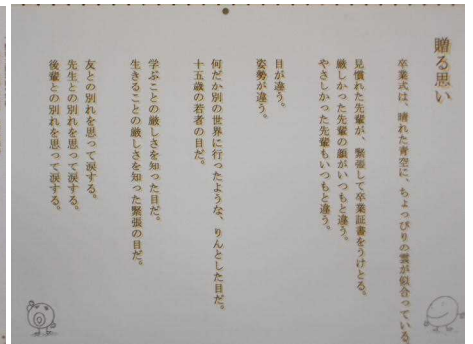 贈る思い
卒業式は、晴れた青空に、ちょっぴりの雲が似合っている。
見慣れた先輩が、緊張して卒業証書をうけとる。
厳しかった先輩の顔がいつもと違う。
やさしかった先輩もいつもと違う。
目が違う。
姿勢が違う。
何だか別の世界に行ったような、りんとした目だ。
十五歳の若者の目だ。
学ぶことの厳しさを知った目だ。
生きることの厳しさを知った緊張の目だ。
友との別れを思って涙する。
先生との別れを思って涙する。
後輩との別れを思って涙する。